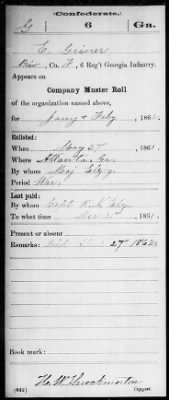 (Confederate.)
G 6 Ga.
C. Griner
Priv, Co. F, 6 Reg't Georgia Infantry.
Appears on
Company Muster Roll
of the organization named above,
for Jany & Feby, 186
Enlisted:
When May 27, 1861
Where Atlanta Ga.
By whom Maj
Period War
Last paid:
By whom Capt
To what time , 1861
Present or absent
Remarks: 27" 1862
Book mark:
(642) Copyist.